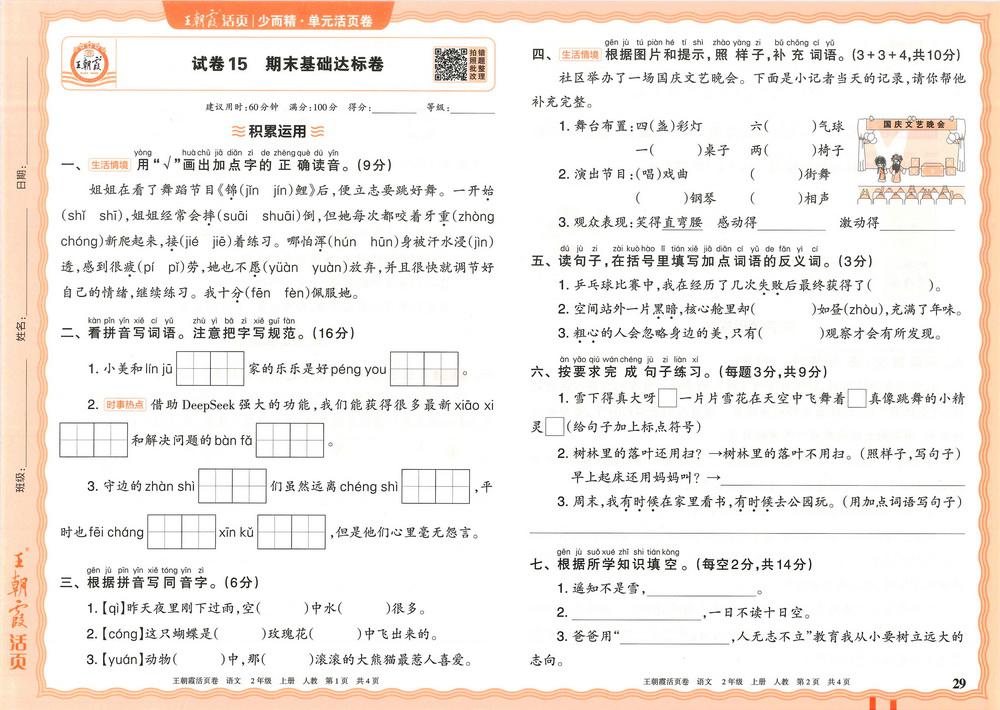 王朝霞活页 | 少而精·单元活页卷
王朝霞
试卷15 期末基础达标卷
错题整理
拍照批改
建议用时:60分钟 满分:100分 得分:________ 等级:________
积累运用
yòng huà chū jiā diǎn zì de zhèng què dú yīn
一、 生活情境 用“√”画出加点字的正确读音。(9分)
姐姐在看了舞蹈节目《锦(jǐn jín)鲤》后,便立志要跳好舞。一开始
(shǐ shī),姐姐经常会摔(suāi shuāi)倒,但她每次都咬着牙重(zhòng
chóng)新爬起来,接(jié jiē)着练习。哪怕浑(hún hūn)身被汗水浸(jìn)
透,感到很疲(pí pǐ)劳,她也不愿(yüàn yuàn)放弃,并且很快就调节好
自己的情绪,继续练习。我十分(fēn fèn)佩服她。
kàn pīn yīn xiě cí yǔ zhù yì bǎ zì xiě guī fàn
二、看拼音写词语。注意把字写规范。(16分)
1. 小美和lín jū 家的乐乐是好péng you 。
2. 时事热点 借助 DeepSeek 强大的功能,我们能获得很多最新 xiāo xi
和解决问题的bàn fǎ 。
3. 守边的zhàn shì 们虽然远离chéng shì ,平
时也fēi cháng xīn kǔ ,但是他们心里毫无怨言。
gēn jù pīn yīn xiě tóng yīn zì
三、根据拼音写同音字。(6分)
1.【qì】昨天夜里刚下过雨,空( )中水( )很多。
2.【cóng】这只蝴蝶是( )玫瑰花( )中飞出来的。
3.【yuán】动物( )中,那( )滚滚的大熊猫最惹人喜爱。
王朝霞活页卷 语文 2年级 上册 人教 第1页 共4页
gēn jù tú piàn hé tí shì zhào yàng zi bǔ chōng cí yǔ
四、 生活情境 根据图片和提示,照样子,补充词语。(3+3+4,共10分)
社区举办了一场国庆文艺晚会。下面是小记者当天的记录,请你帮他
补充完整。
1. 舞台布置:四(盏)彩灯 六( )气球
一( )桌子 两( )椅子
2. 演出节目:(唱)戏曲 ( )街舞
( )钢琴 ( )相声
3. 观众表现:笑得直弯腰 感动得________ 激动得________
国庆文艺晚会
dú jù zi zài kuò hào lǐ tián xiě jiā diǎn cí yǔ de fǎn yì cí
五、读句子,在括号里填写加点词语的反义词。(3分)
1. 乒乓球比赛中,我在经历了几次失败后最终获得了( )。
2. 空间站外一片黑暗,核心舱里却( )如昼(zhòu),充满了年味。
3. 粗心的人会忽略身边的美,只有( )观察才会有所发现。
àn yāo qiú wán chéng jù zi liàn xí
六、按要求完成句子练习。(每题3分,共9分)
1. 雪下得真大呀□一片片雪花在天空中飞舞着□真像跳舞的小精
灵□(给句子加上标点符号)
2. 树林里的落叶还用扫? →树林里的落叶不用扫。(照样子,写句子)
早上起床还用妈妈叫? →________
3. 周末,我有时候在家里看书,有时候去公园玩。(用加点词语写句子)
gēn jù suǒ xué zhī shi tián kòng
七、根据所学知识填空。(每空2分,共14分)
1. 遥知不是雪,________。
2. ________,一日不读十日空。
3. 爸爸用“________,人无志不立”教育我从小要树立远大的
志向。
王朝霞活页卷 语文 2年级 上册 人教 第2页 共4页
29
日期:
姓名:
班级:
王朝霞活页